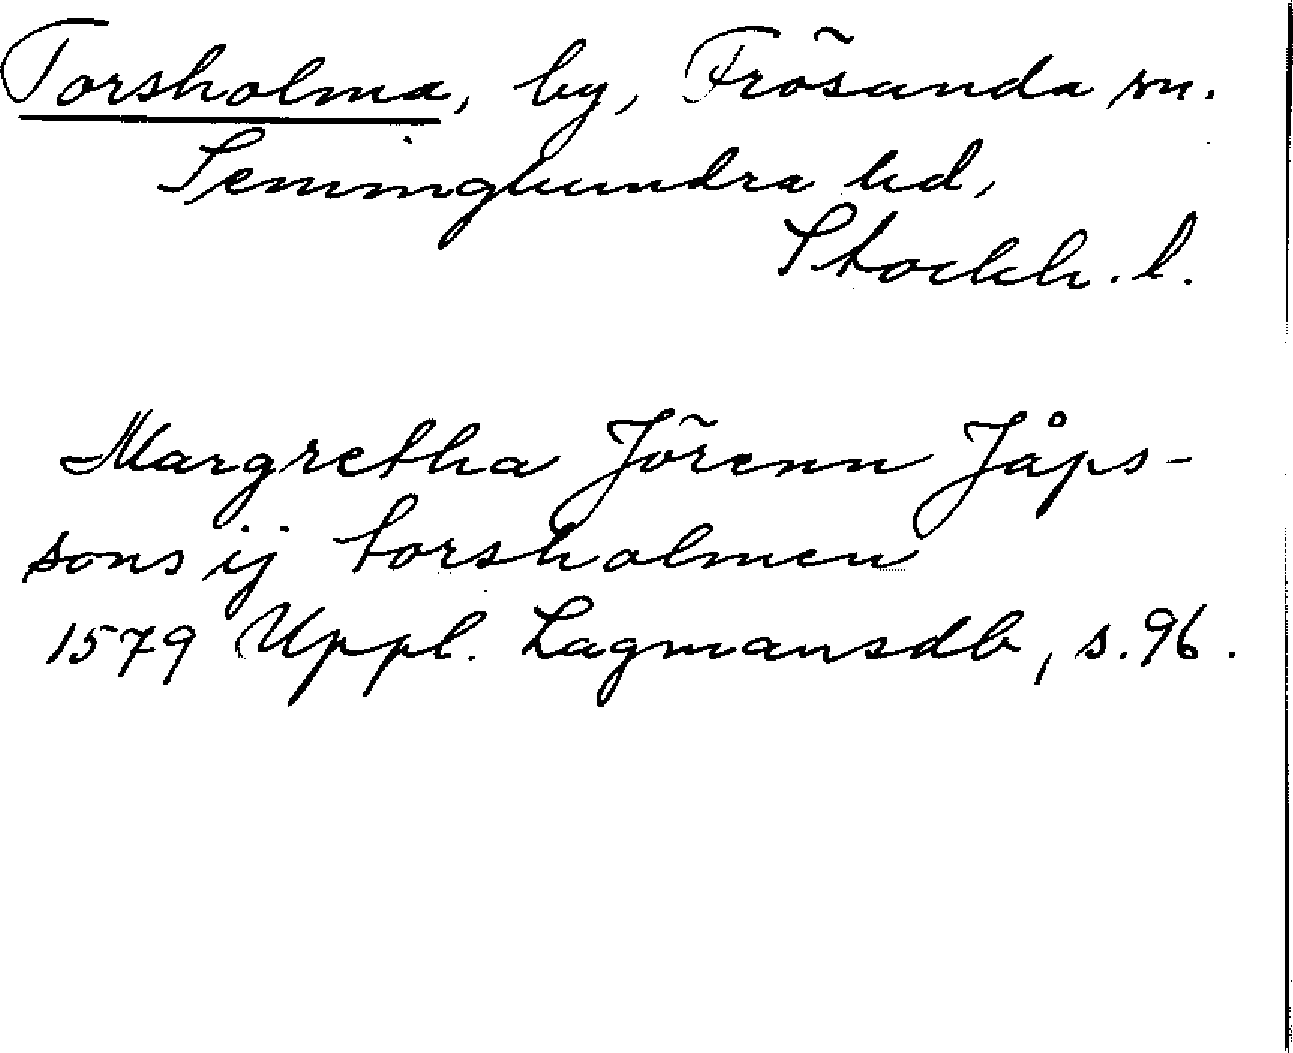 Torsholma, by, Frösunda sn.
Seminghundra hd,
Stockh. l.
Margretha Jörenn Jåps-
sons ij torsholmen
1579 Uppl. Lagmansdb, s. 96.